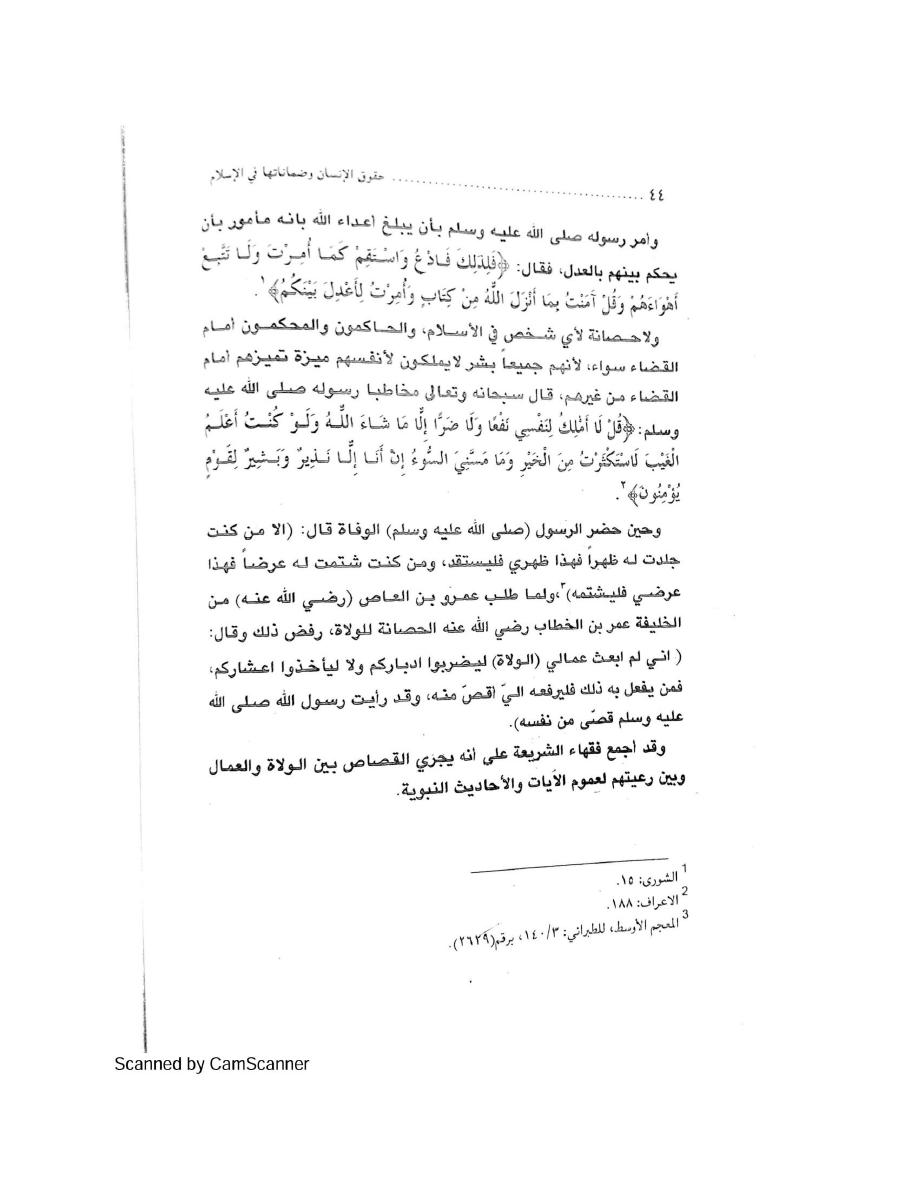 ٤٤ ........................................ حقوق الإنسان وضماناتها في الإسلام
وأمر رسوله صلى الله عليه وسلم بأن يبلغ أعداء الله بانه مأمور بأن
يحكم بينهم بالعدل، فقال: ﴿فَلِذَلِكَ فَادْعُ وَاسْتَقِمْ كَمَا أُمِرْتَ وَلَا تَتَّبِعْ
أَهْوَاءَهُمْ وَقُلْ آمَنْتُ بِمَا أَنْزَلَ اللَّهُ مِنْ كِتَابٍ وَأُمِرْتُ لِأَعْدِلَ بَيْنَكُمُ﴾¹.
ولاحصانة لأي شخص في الأسلام، والحاكمون والمحكمون أمام
القضاء سواء، لأنهم جميعاً بشر لايملكون لأنفسهم ميزة تميزهم أمام
القضاء من غيرهم، قال سبحانه وتعالى مخاطبا رسوله صلى الله عليه
وسلم:﴿قُلْ لَا أَمْلِكُ لِنَفْسِي نَفْعًا وَلَا ضَرًّا إِلَّا مَا شَاءَ اللَّهُ وَلَوْ كُنْتُ أَعْلَمُ
الْغَيْبَ لَاسْتَكْثَرْتُ مِنَ الْخَيْرِ وَمَا مَسَّنِيَ السُّوءُ إِنْ أَنَا إِلَّا نَذِيرٌ وَبَشِيرٌ لِقَوْمٍ
يُؤْمِنُونَ﴾².
وحين حضر الرسول (صلى الله عليه وسلم) الوفاة قال: (الا من كنت
جلدت له ظهراً فهذا ظهري فليستقد، ومن كنت شتمت له عرضاً فهذا
عرضي فليشتمه)³،ولما طلب عمرو بن العاص (رضي الله عنه) من
الخليفة عمر بن الخطاب رضي الله عنه الحصانة للولاة، رفض ذلك وقال:
( اني لم ابعث عمالي (الولاة) ليضربوا ادباركم ولا ليأخذوا اعشاركم،
فمن يفعل به ذلك فليرفعه اليّ أقصّ منه، وقد رأيت رسول الله صلى الله
عليه وسلم قصّى من نفسه).
وقد أجمع فقهاء الشريعة على أنه يجري القصاص بين الولاة والعمال
وبين رعيتهم لعموم الآيات والأحاديث النبوية.
1 الشورى: ١٥.
2 الاعراف: ١٨٨.
3 المعجم الأوسط، للطبراني: ١٤٠/٣، برقم(٢٦٢٩).
Scanned by CamScanner